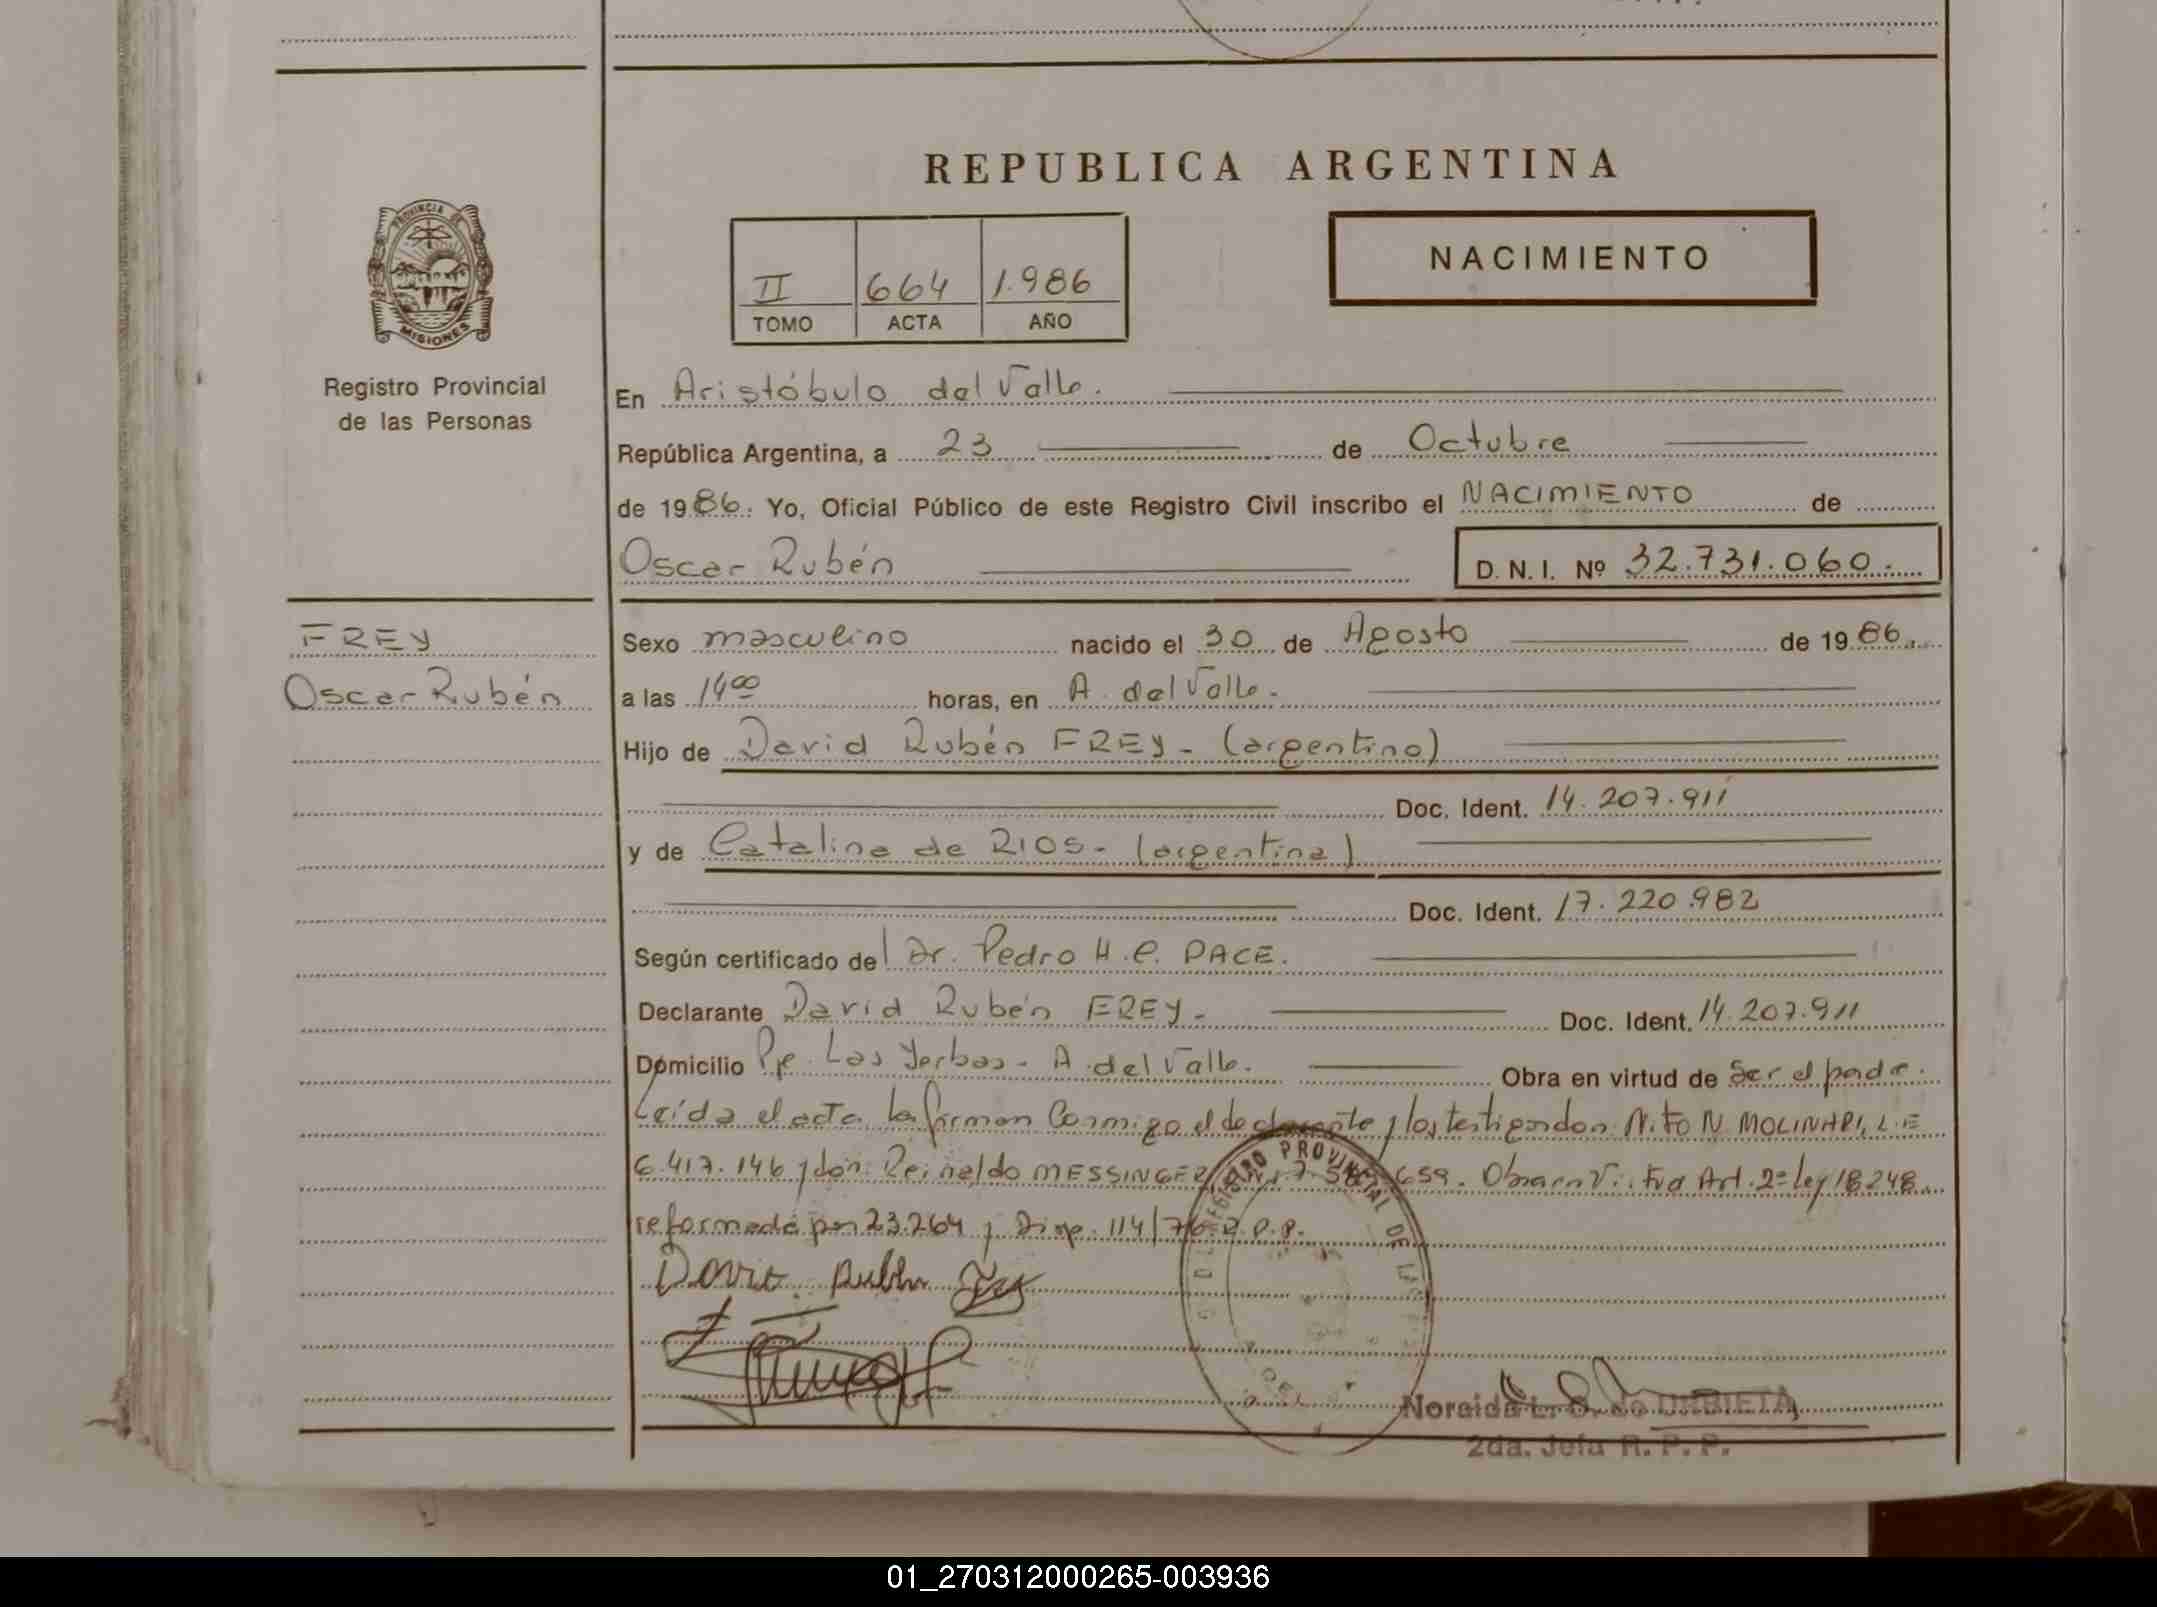 REPUBLICA ARGENTINA
NACIMIENTO
II 664 1.986
TOMO ACTA AÑO
PROVINCIA DE
MISIONES
Registro Provincial
de las Personas
En Aristóbulo del Valle.
República Argentina, a 23 de Octubre
de 1986. Yo, Oficial Público de este Registro Civil inscribo el NACIMIENTO de
Oscar Rubén D. N. I. Nº 32.731.060.
FREY
Oscar Rubén
Sexo masculino nacido el 30 de Agosto de 1986
a las 14 00 horas, en A. del Valle.
Hijo de David Rubén FREY - (argentino)
Doc. Ident. 14.207.911
y de Catalina de RIOS - (argentina)
Doc. Ident. 17.220.982
Según certificado del Dr. Pedro H. C. PACE.
Declarante David Rubén FREY - Doc. Ident. 14.207.911
Domicilio Pje. Las Yerbas - A. del Valle. Obra en virtud de Ser el padre.
Leída el acta la firman Conmigo el declarante y los testigos don N. MOLINARI, L.E
6.417.146 y don Reinaldo MESSINGER 659. Art. 2º Ley 18248
reformada por 23.264 y Disp. 114/76
REGISTRO PROVINCIAL DE LAS
Noraida L. de URBIETA
2da. Jefa R. P. P.
01_270312000265-003936